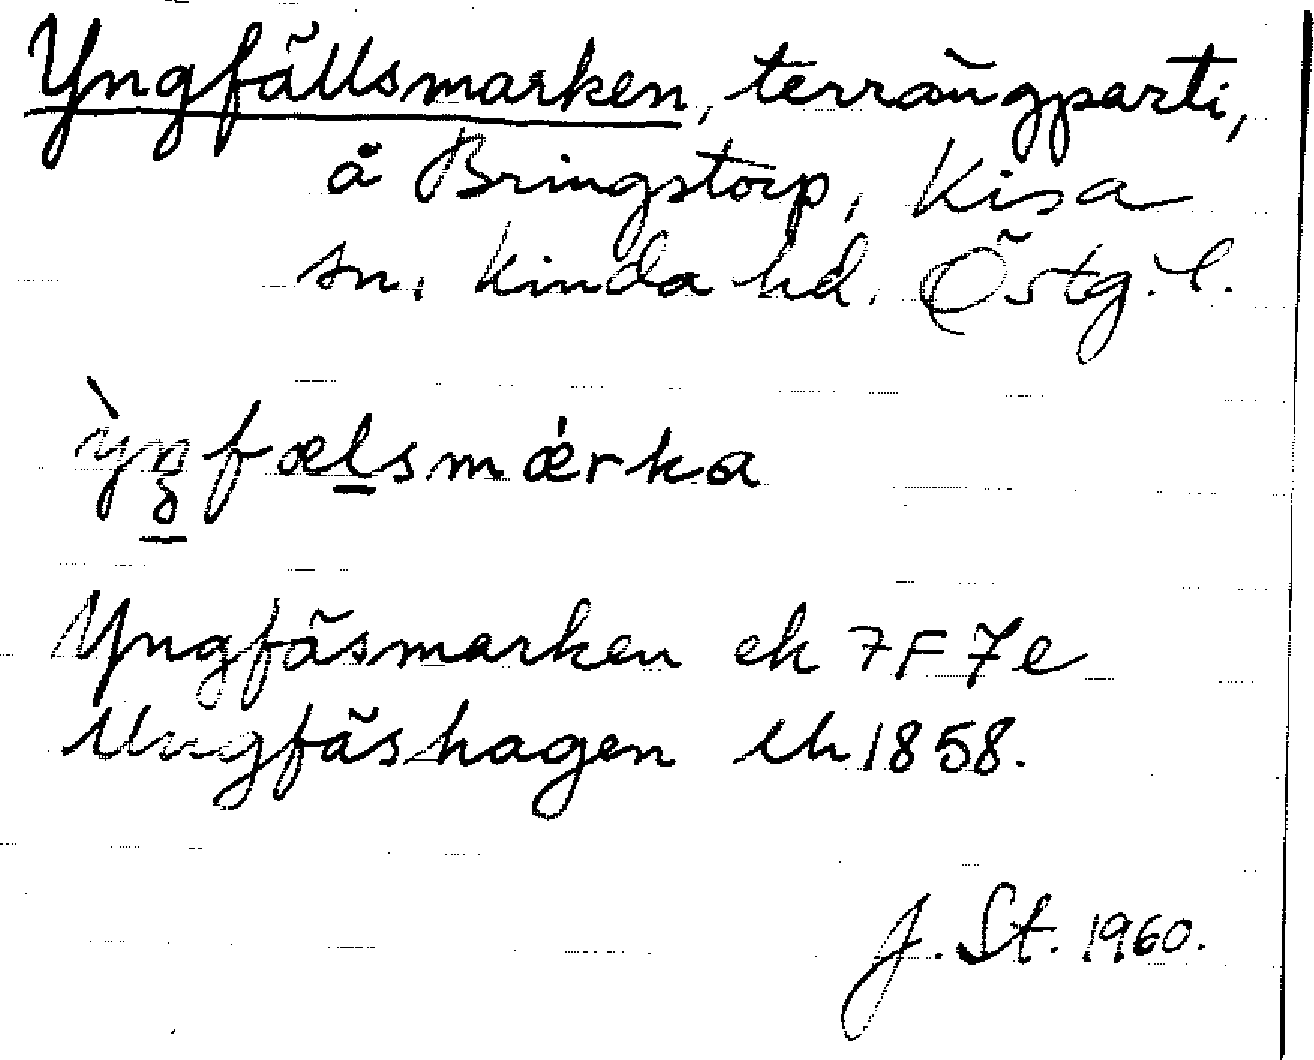 Yngfällsmarken, terrängparti,
å Bringstorp, Kisa
sn, Kinda hd. Östg. l.
ỳŋfælsmǽrka
Yngfäsmarken ek 7F7e
Ungfäshagen lh 1858.
J. St. 1960.